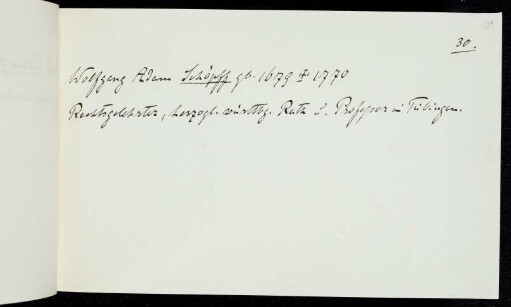 30.
Wolfgang Adam Schöpff gb. 1679 † 1770
Rechtsgelehrter, herzogl. württbg. Rath u. Professor in Tübingen.